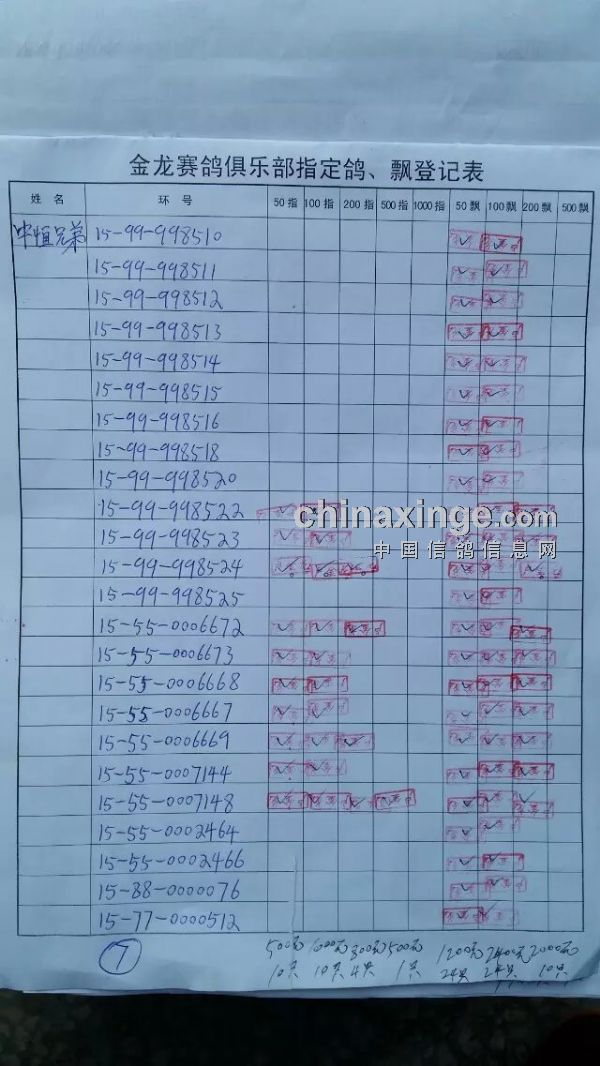 金龙赛鸽俱乐部指定鸽、飘登记表
姓 名 环 号 50指 100指 200指 500指 1000指 50飘 100飘 200飘 500飘
中恒兄弟 15-99-998510
15-99-998511
15-99-998512
15-99-998513
15-99-998514
15-99-998515
15-99-998516
15-99-998518
15-99-998520
15-99-998522
chinaxinge.com
15-99-998523
中国信鸽信息网
15-99-998524
15-99-998525
15-55-0006672
15-55-0006673
15-55-0006668
15-55-0006667
15-55-0006669
15-55-0007144
15-55-0007148
15-55-0002464
15-55-0002466
15-88-0000076
15-77-0000512
7
500元 1000元 800元 500元 1200元 2400元 2000元
10只 10只 4只 1只 24只 24只 10只